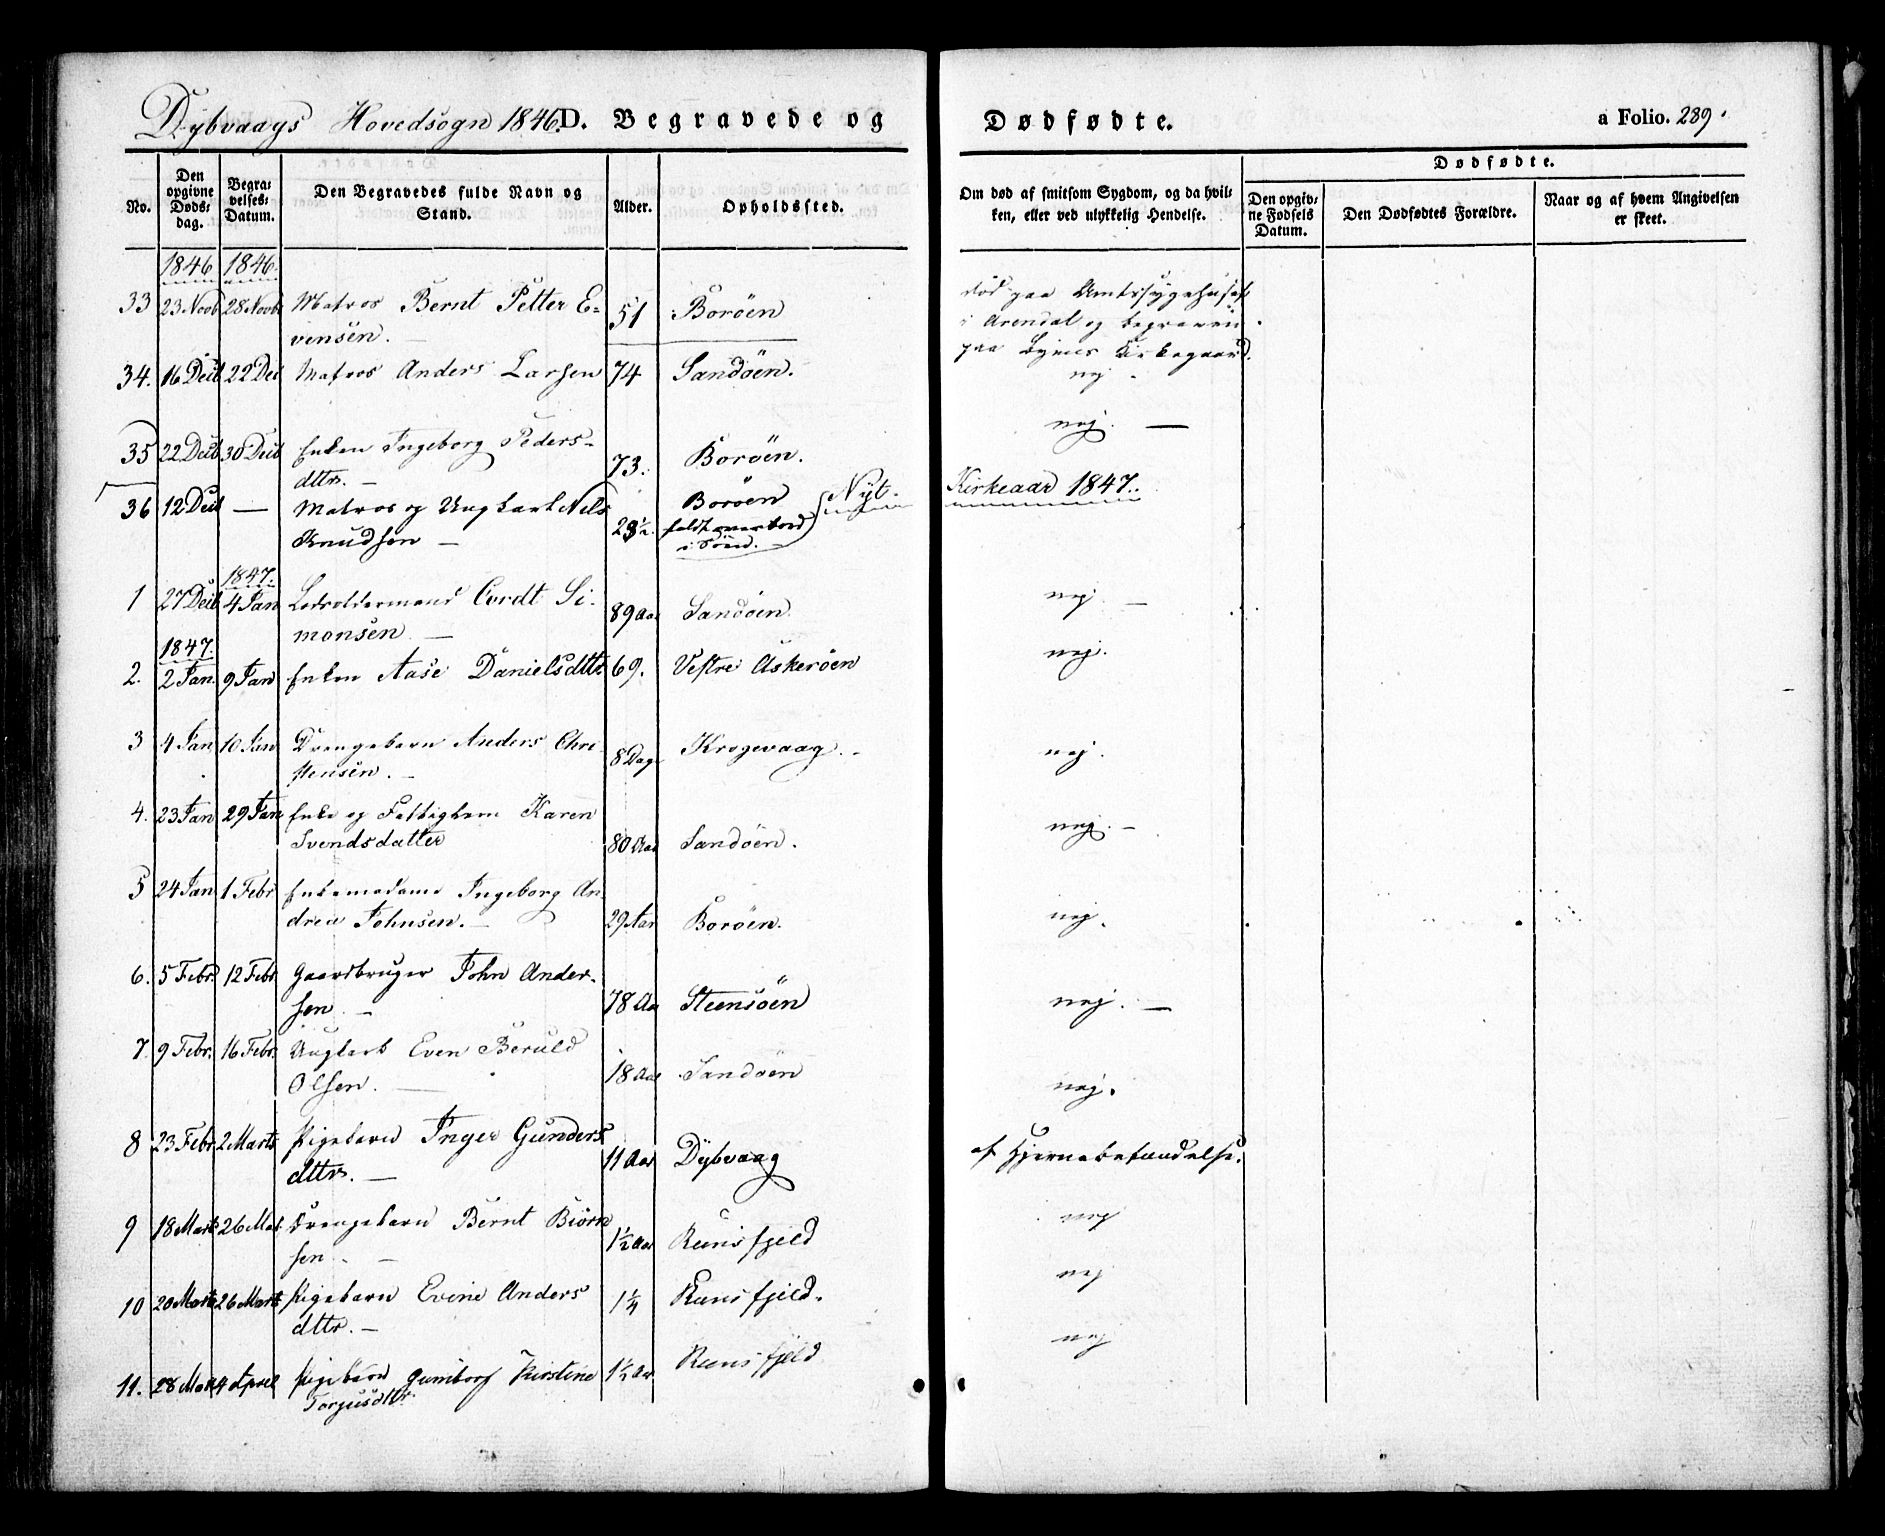 Dybvaags Hovedsogn 1846. D. Begravede og Dødfødte. a Folio. 289.
No. Den opgivne Døds-dag. Begra-velses-Datum. Den Begravedes fulde Navn og Stand. Alder. Opholdssted. Om død af smitsom Sygdom, og da hvil-ken, eller ved ulykkelig Hendelse. Dødfødte. Den opgiv-ne Fødsels Datum. Den Dødfødtes Forældre. Naar og af hvem Angivelsen er skeet.
1846 1846.
33 23 Novb 28 Novb Matros Bernt Petter E- 51 Boröen død paa Amtssygehuset
vensen. — i Arendal og begraven
paa Kirkegaard.
34. 16 Decb 22 Dec Matros Anders Larsen 74 Sandöen. nej.
35 22 Decb 30 Decb Enken Ingeborg Peders- 73. Boröen. nej. —
dttr. —
36 12 Decb — Matros og Ungkarl Nils 23½. Boröen Nyt. Kirkeaar 1847.
Knudsen — faldt overbord
i Söen.
1847.
1 27 Decb 4 Jan Cordt Si- 89 Aar Sandöen. nej. —
monsen. —
1847.
2. 2 Jan. 9 Jan Enken Aase Danielsdttr 69. Vestre Askeröen nej.
3 4 Jan 10 Jan Drengebarn Anders Chri- 8 Dage Krogevaag. nej.
stensen. —
4. 23 Jan 29 Jan Enke og Fattiglem Karen 80 Aar Sandöen. nej. —
Svendsdatter
5 24 Jan 1 Febr Enkemadame Ingeborg An- 29 Aar Boröen. nej.
drea Johnsen. —
6. 5 Febr. 12 Febr Gaardbruger John Ander- 78 Aar Steensöen nej. —
sen. —
7. 9 Febr. 16 Febr. Ungkarl Even Beruld 18 Aar Sandöen nej.
Olsen. —
8 23 Febr. 2 Marts Pigebarn Inger Gunders 11 Aar Dybvaag af Hjernebetændelse.
dttr. —
9 18 Marts 26 Mar. Drengebarn Bernt Biörn 1½ Aar Runsfjeld nej
sen. —
10 20 Marts 26 Marts Pigebarn Evine Anders 1¼ Runsfjeld. nej
dttr. —
11. 28 Mar 4 April Pigebarn Gunborg Kirstine 1½ Aar Runsfjeld nej
Torgusdttr.